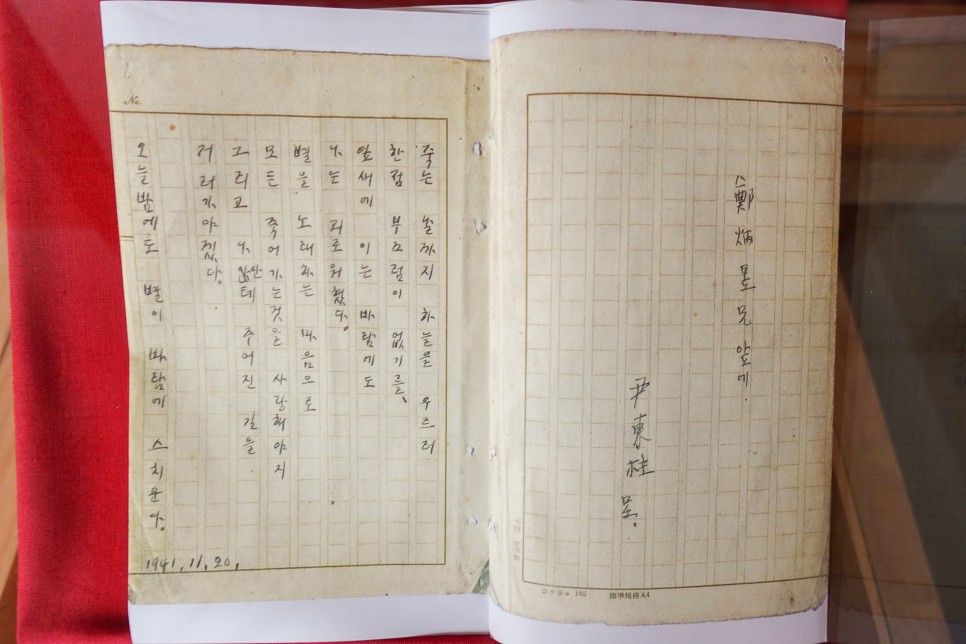 鄭炳昱兄 앞에.
尹東柱 呈.
標準規格A4
No.
죽는 날까지 하늘을 우르러
한점 부끄럼이 없기를、
잎새에 이는 바람에도
나는 괴로워했다.
별을 노래하는 마음으로
모든 죽어가는것을 사랑해야지
그리고 나안테 주어진 길을
거러가야겠다.
오늘밤에도 별이 바람에 스치운다.
1941.11.20.